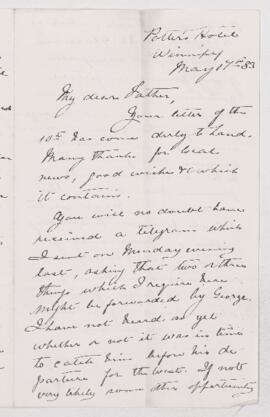 Potter's Hotel
Winnipeg
May 17th 83
My dear Father,
Your letter of the
10th has come duly to hand.
Many thanks for local
news, good wishes &c which
it contains.
You will no doubt have
received a telegram which
I sent on Monday evening
last, asking that two or three
things which I require here
might be forwarded by George.
I have not heard as yet
whether or not it was in time
to catch him before his de
parture for the West. If not
very likely some other opportunity